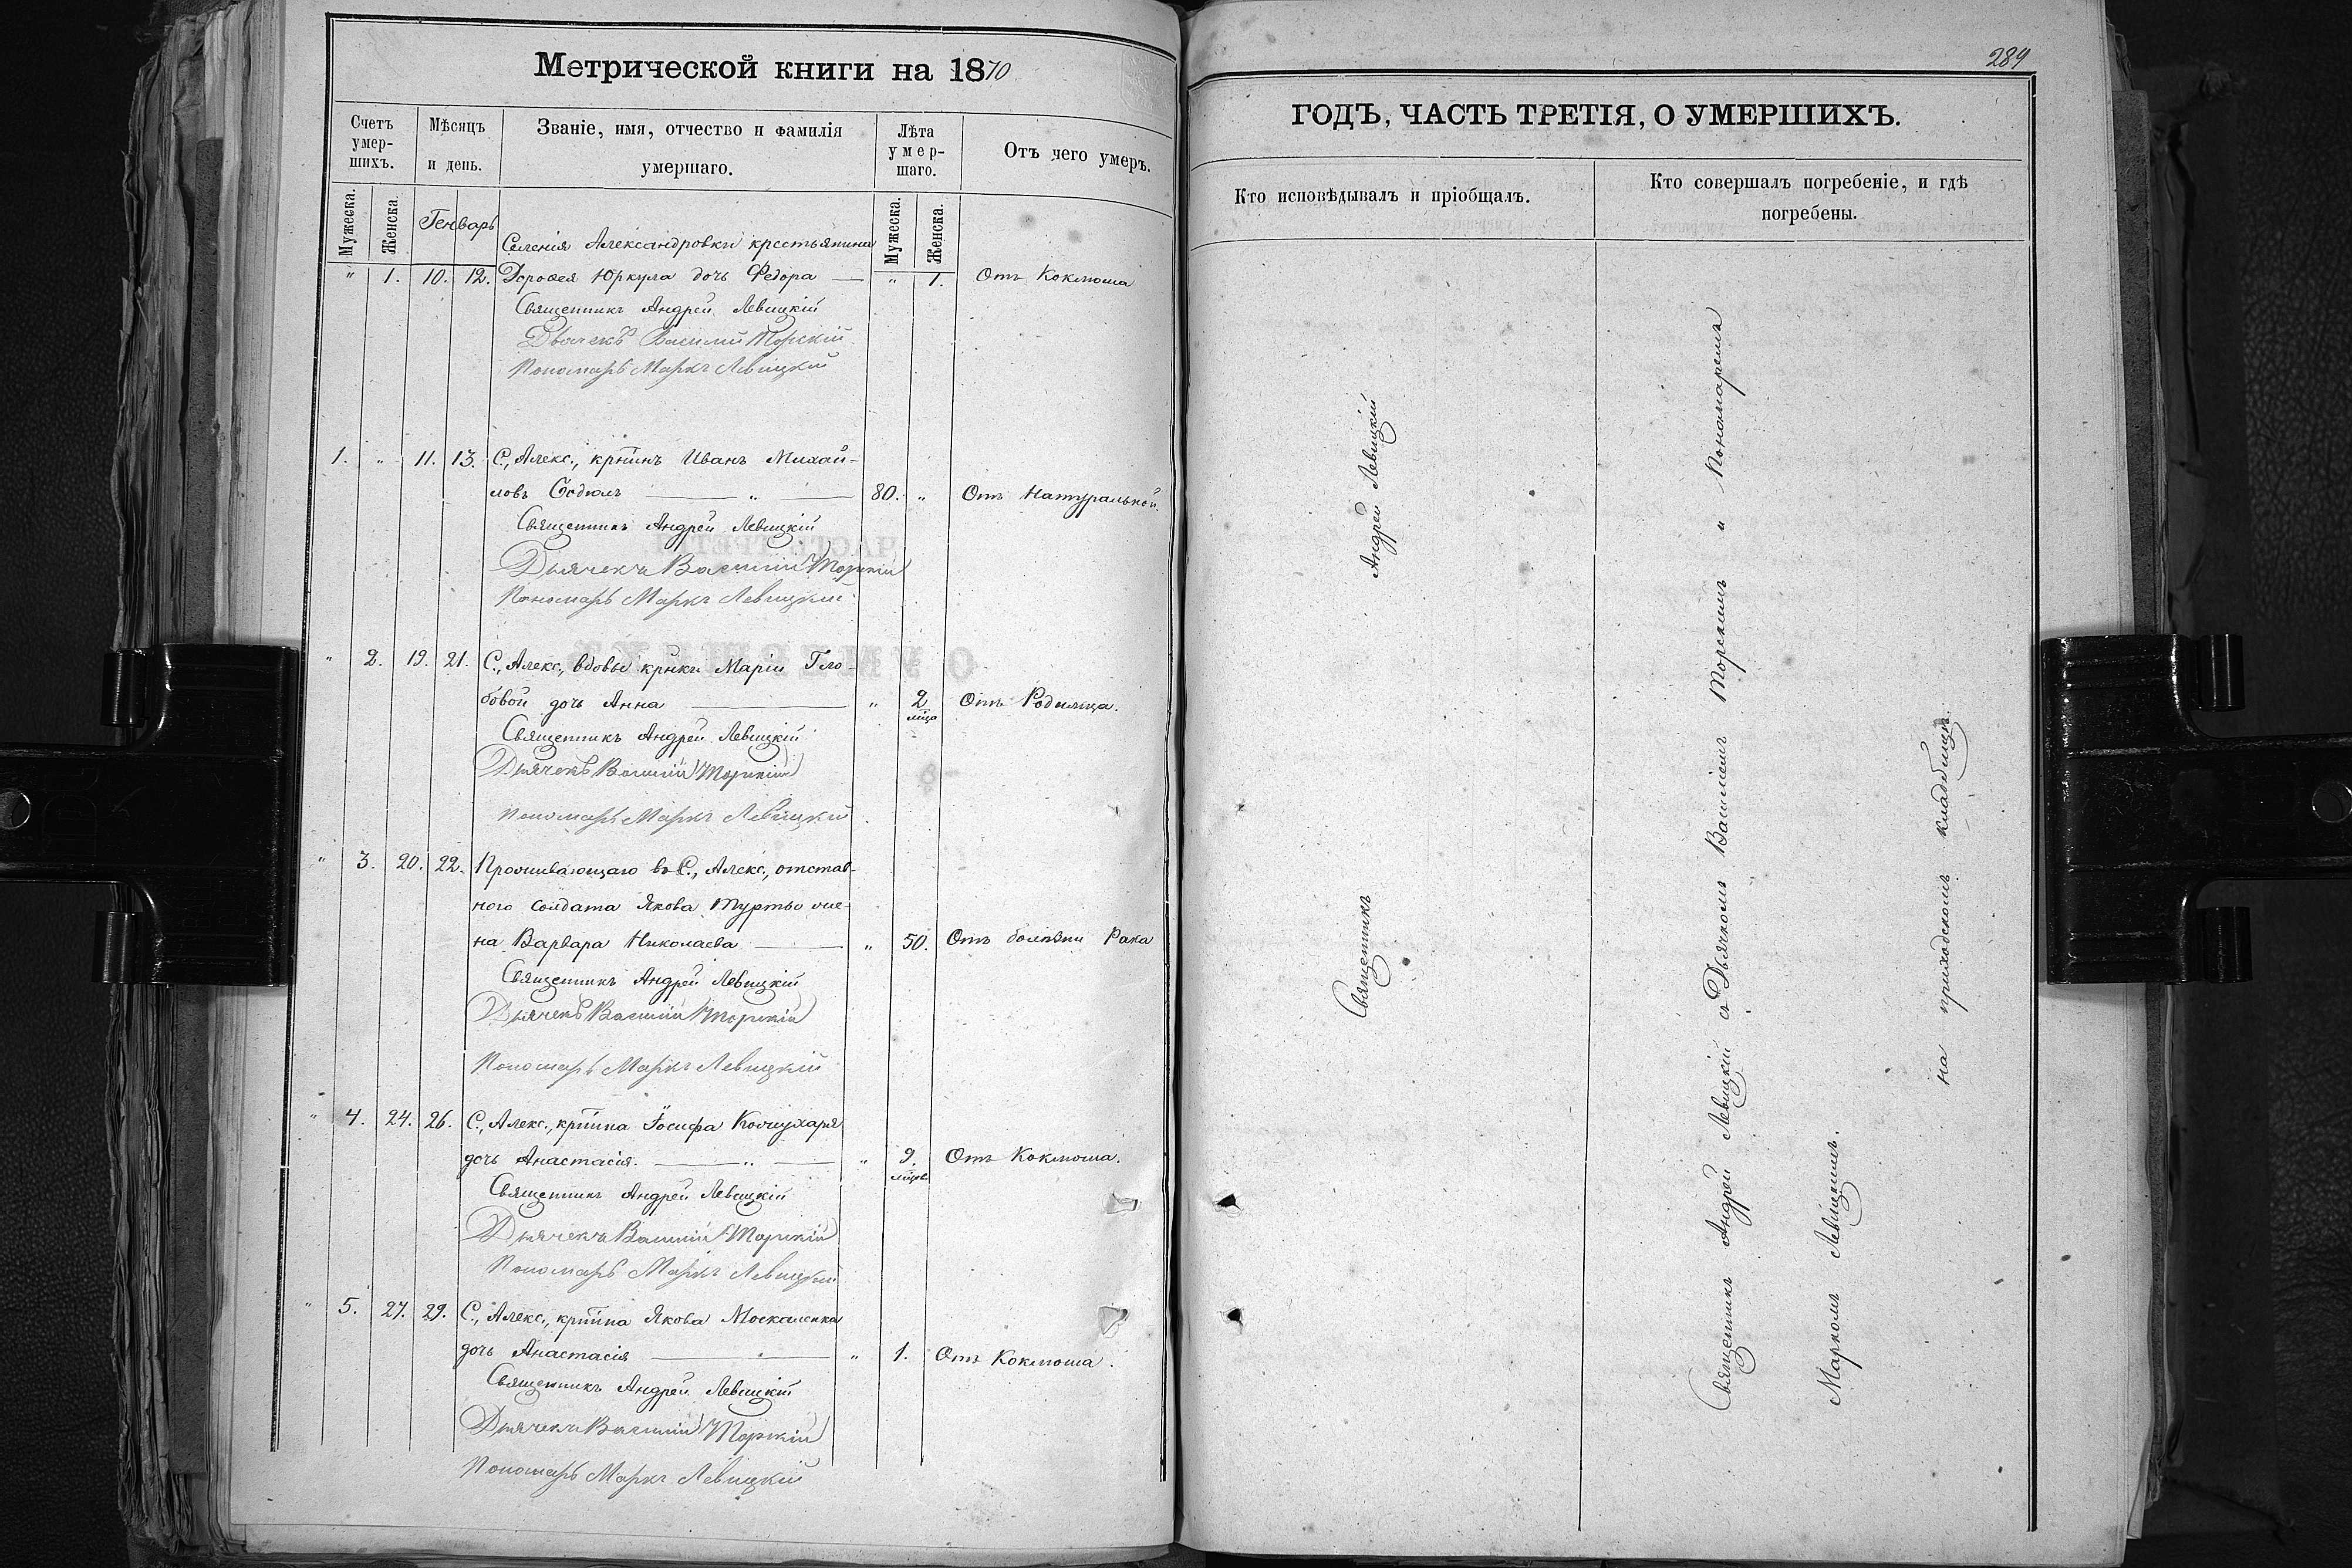 Метрической книги на 1870
Счетъ умер-шихъ.
Мѣсяцъ и день.
Званіе, имя, отчество и фамилія умершаго.
Лѣта умер-шаго.
Отъ чего умеръ.
Мужеска.
Женска.
Генварь
Мужеска.
Женска.
Селенія Александровки крестьянина
" 1. 10. 12. Дорофея Юркула дочь Федора — " 1. Отъ Коклюша
Священникъ Андрей Левицкій
Дьячекъ Василий Торскій
Пономарь Маркъ Левицкій
1. " 11. 13. С., Алекс., крт҃инъ Иванъ Михай-
ловъ — " — 80. " Отъ Натуральной.
Священникъ Андрей Левицкій
Дьячекъ Василий Торскій
Пономарь Маркъ Левицкій
" 2. 19. 21. С., Алекс., вдовы крт҃ки Маріи Гло-
бовой дочь Анна — " 2 мц҃а Отъ Родимца.
Священникъ Андрей Левицкій
Дьячекъ Василий Торскій
Пономарь Маркъ Левицкій
" 3. 20. 22. Проживающаго въ С., Алекс., отстав-
ного солдата Якова Турты же-
на Варвара Николаева — " 50. Отъ болѣзни Рака
Священникъ Андрей Левицкій
Дьячекъ Василий Торскій
Пономарь Маркъ Левицкій
" 4. 24. 26. С., Алекс., крт҃ина Іосифа Кожухаря
дочь Анастасія. — " — " 9. мц҃овъ Отъ Коклюша.
Священникъ Андрей Левицкій
Дьячекъ Василий Торскій
Пономарь Маркъ Левицкій
" 5. 27. 29. С., Алекс., крт҃ина Якова Москаленка
дочь Анастасія — " 1. Отъ Коклюша.
Священникъ Андрей Левицкій
Дьячекъ Василий Торскій
Пономарь Маркъ Левицкій
289
ГОДЪ, ЧАСТЬ ТРЕТІЯ, О УМЕРШИХЪ.
Кто исповѣдывалъ и пріобщалъ.
Кто совершалъ погребеніе, и гдѣ
погребены.
Священникъ Андрей Левицкій
Священникъ Андрей Левицкій съ Дьячкомъ Василіемъ Торскимъ и Пономаремъ
Маркомъ Левицкимъ.
на приходскомъ кладбищѣ.